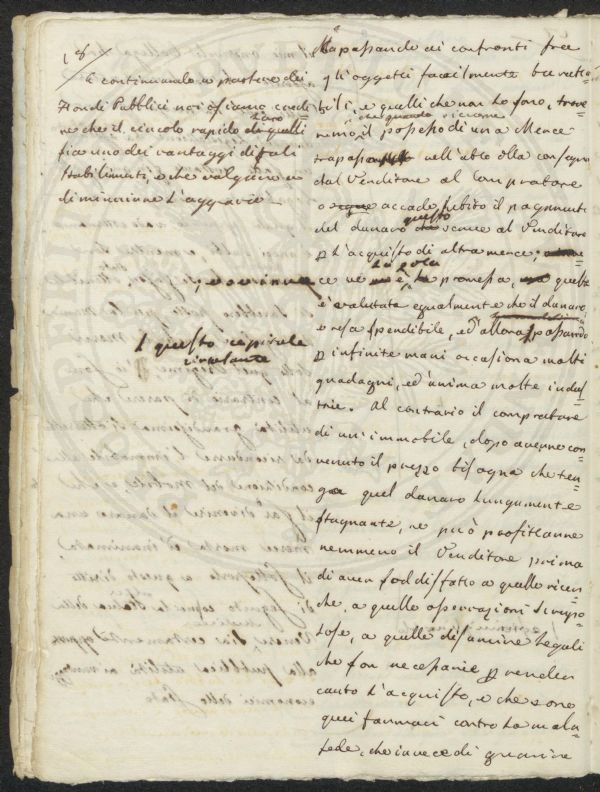 18
E continuando a parlare dei
Fondi Pubblici noi siamo
ne che il circolo rapido di quelli
Loro
sia uno dei vantaggi di tali
stabilimenti, e che valga
diminuirne l'aggravio
, ovvinue
questo capitale
circolante
Ma passando ai confronti fra
gli oggetti facilmente
bili, e quelli che non lo sono, trove=
remo, che quando
il possesso di una Merce
trapassa nell'atto della consegna
dal Venditore al Compratore
o accade subito il pagamento
del danaro questo serve al Venditore
p l'acquisto di altra merce,
ce ne è la sola promessa, questa
è valutata egualmente che il danaro
e resa spendibile, ed allora passando
p infinite mani occasiona molti
guadagni, ed anima molte indus=
trie. Al contrario il compratore
di un immobile, dopo averne con=
venuto il prezzo bisogna che ten=
ga quel danaro lungamente
stagnante, ne può profittarne
nemmeno il Venditore prima
di aver soddisfatto a quelle ricer=
che, a quelle osservazioni scrupo=
lose, a quelle disamine legali
che son necessarie p render
cauto l'acquisto, e che sono
quei farmaci contro la mala=
fede, che invece di guarire